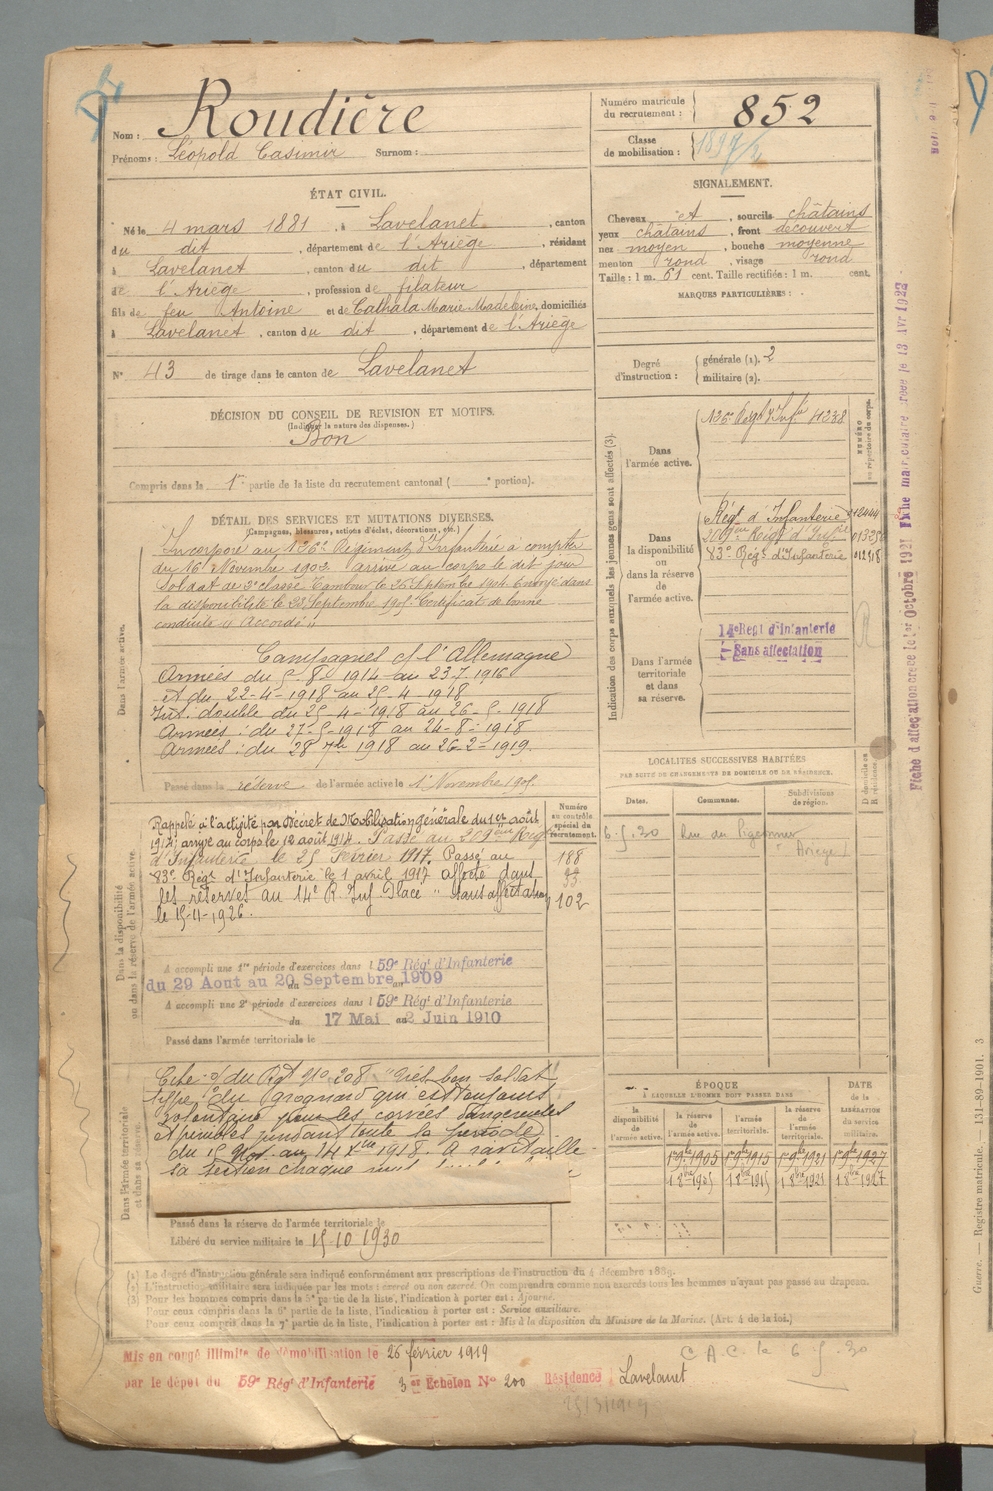 Nom : Roudière
Prénoms : Léopold Casimir Surnom :
Numéro matricule du recrutement : 852
Classe de mobilisation :
ÉTAT CIVIL.
Né le 4 mars 1881, à Lavelanet, canton
du dit, département de l'Ariège, résidant
à Lavelanet, canton du dit, département
de l'Ariège, profession de filateur
fils de feu Antoine et de Cathala Marie Madeleine, domiciliés
à Lavelanet, canton du dit, département de l'Ariège
N° 43 de tirage dans le canton de Lavelanet
SIGNALEMENT.
Cheveux et, sourcils châtains
yeux châtains, front découvert
nez moyen, bouche moyenne
menton rond, visage rond
Taille : 1 m. 61 cent. Taille rectifiée : 1 m. cent.
MARQUES PARTICULIÈRES :
Degré d'instruction : générale (1). 2
militaire (2).
DÉCISION DU CONSEIL DE REVISION ET MOTIFS.
(Indiquer la nature des dispenses.)
Bon
Compris dans la 1re partie de la liste du recrutement cantonal ( e portion).
DÉTAIL DES SERVICES ET MUTATIONS DIVERSES.
(Campagnes, blessures, actions d'éclat, décorations, etc.)
Dans l'armée active.
Incorporé au 126e Régiment d'Infanterie à compter
du 16 Novembre 1902. arrivé au corps le dit jour
Soldat de 2e classe. Tambour le 26 Septembre 1904. Envoyé dans
la disponibilité le 23 Septembre 1905. Certificat de bonne
conduite "Accordé"
Campagnes c/ l'Allemagne
Armées du 5.8. 1914 au 23.7.1916
et du 22-4-1918 au 25-4-1918
double du 25-4-1918 au 26-5-1918
Armées : du 27-5-1918 au 24-8-1918
Armées : du 28 1918 au 26-2-1919.
Passé dans la réserve de l'armée active le 1 Novembre 1905.
Indication des corps auxquels les jeunes gens sont affectés (3).
NUMÉRO au répertoire du corps.
Dans l'armée active.
126e Régt d'Infie 4238
Dans la disponibilité ou dans la réserve de l'armée active.
Régt d'Infanterie
209e Régt d'Inf
83e Régt d'Infanterie
Dans l'armée territoriale et dans sa réserve.
14e Regt d'infanterie
Sans affectation
Fiche d'affectation créée le 1er Octobre 1921 Fiche matriculaire créée le 13 Avr 1922
Dans la disponibilité ou dans la réserve de l'armée active
Numéro au contrôle spécial du recrutement.
Rappelé à l'activité par Décret de Mobilisation générale du 1er août
1914; arrivé au corps le 12 août 1914. Passé au 209eme Régt
d'Infanterie le 25 Février 1917. Passé au
83e Régt d'Infanterie le 1 avril 1917 affecté dans
les réserves au 14e R. Inf. Placé "sans affectation"
le 15-11-1926.
188
102
A accompli une 1re période d'exercices dans l 59e Régt d'Infanterie
du 29 Aout au 20 Septembre 1909
A accompli une 2e période d'exercices dans l 59e Régt d'Infanterie
du 17 Mai au 2 Juin 1910
Passé dans l'armée territoriale le
LOCALITÉS SUCCESSIVES HABITÉES
PAR SUITE DE CHANGEMENTS DE DOMICILE OU DE RÉSIDENCE.
Dates. Communes. Subdivisions de région. D domicile ou R résidence.
6.5.30 Rue du Pigeonnier
Ariège
Dans l'armée territoriale et dans sa réserve.
Cité o/ du Régt No 208 "Très bon soldat
type du grognard qui est toujours
volontaire pour les corvées dangereuses
et pénibles pendant toute la période
du 15 au 14 1918. A ravitaillé
sa section chaque nuit
Passé dans la réserve de l'armée territoriale le
Libéré du service militaire le 15-10 1930
ÉPOQUE
À LAQUELLE L'HOMME DOIT PASSER DANS
DATE de la LIBÉRATION du service militaire.
la disponibilité de l'armée active. la réserve de l'armée active. l'armée territoriale. la réserve de l'armée territoriale.
1 9bre 1905 1 9bre 1915 1 9bre 1921 1 9bre 1927
1 8bre 1905 1 8bre 1915 1 8bre 1921 1 8bre 1927
(1) Le degré d'instruction générale sera indiqué conformément aux prescriptions de l'instruction du 4 décembre 1889.
(2) L'instruction militaire sera indiquée par les mots : exercé ou non exercé. On comprendra comme non exercés tous les hommes n'ayant pas passé au drapeau.
(3) Pour les hommes compris dans la 5e partie de la liste, l'indication à porter est : Ajourné.
Pour ceux compris dans la 6e partie de la liste, l'indication à porter est : Service auxiliaire.
Pour ceux compris dans la 7e partie de la liste, l'indication à porter est : Mis à la disposition du Ministre de la Marine. (Art. 4 de la loi.)
Mis en congé illimité de démobilisation le 26 février 1919
par le dépôt du 59e Régt d'Infanterie 3 er Echelon N° 200 Résidence Lavelanet
C.A.C. le 6.5.30
Guerre. — Registre matricule. — 131-89-1901. 3